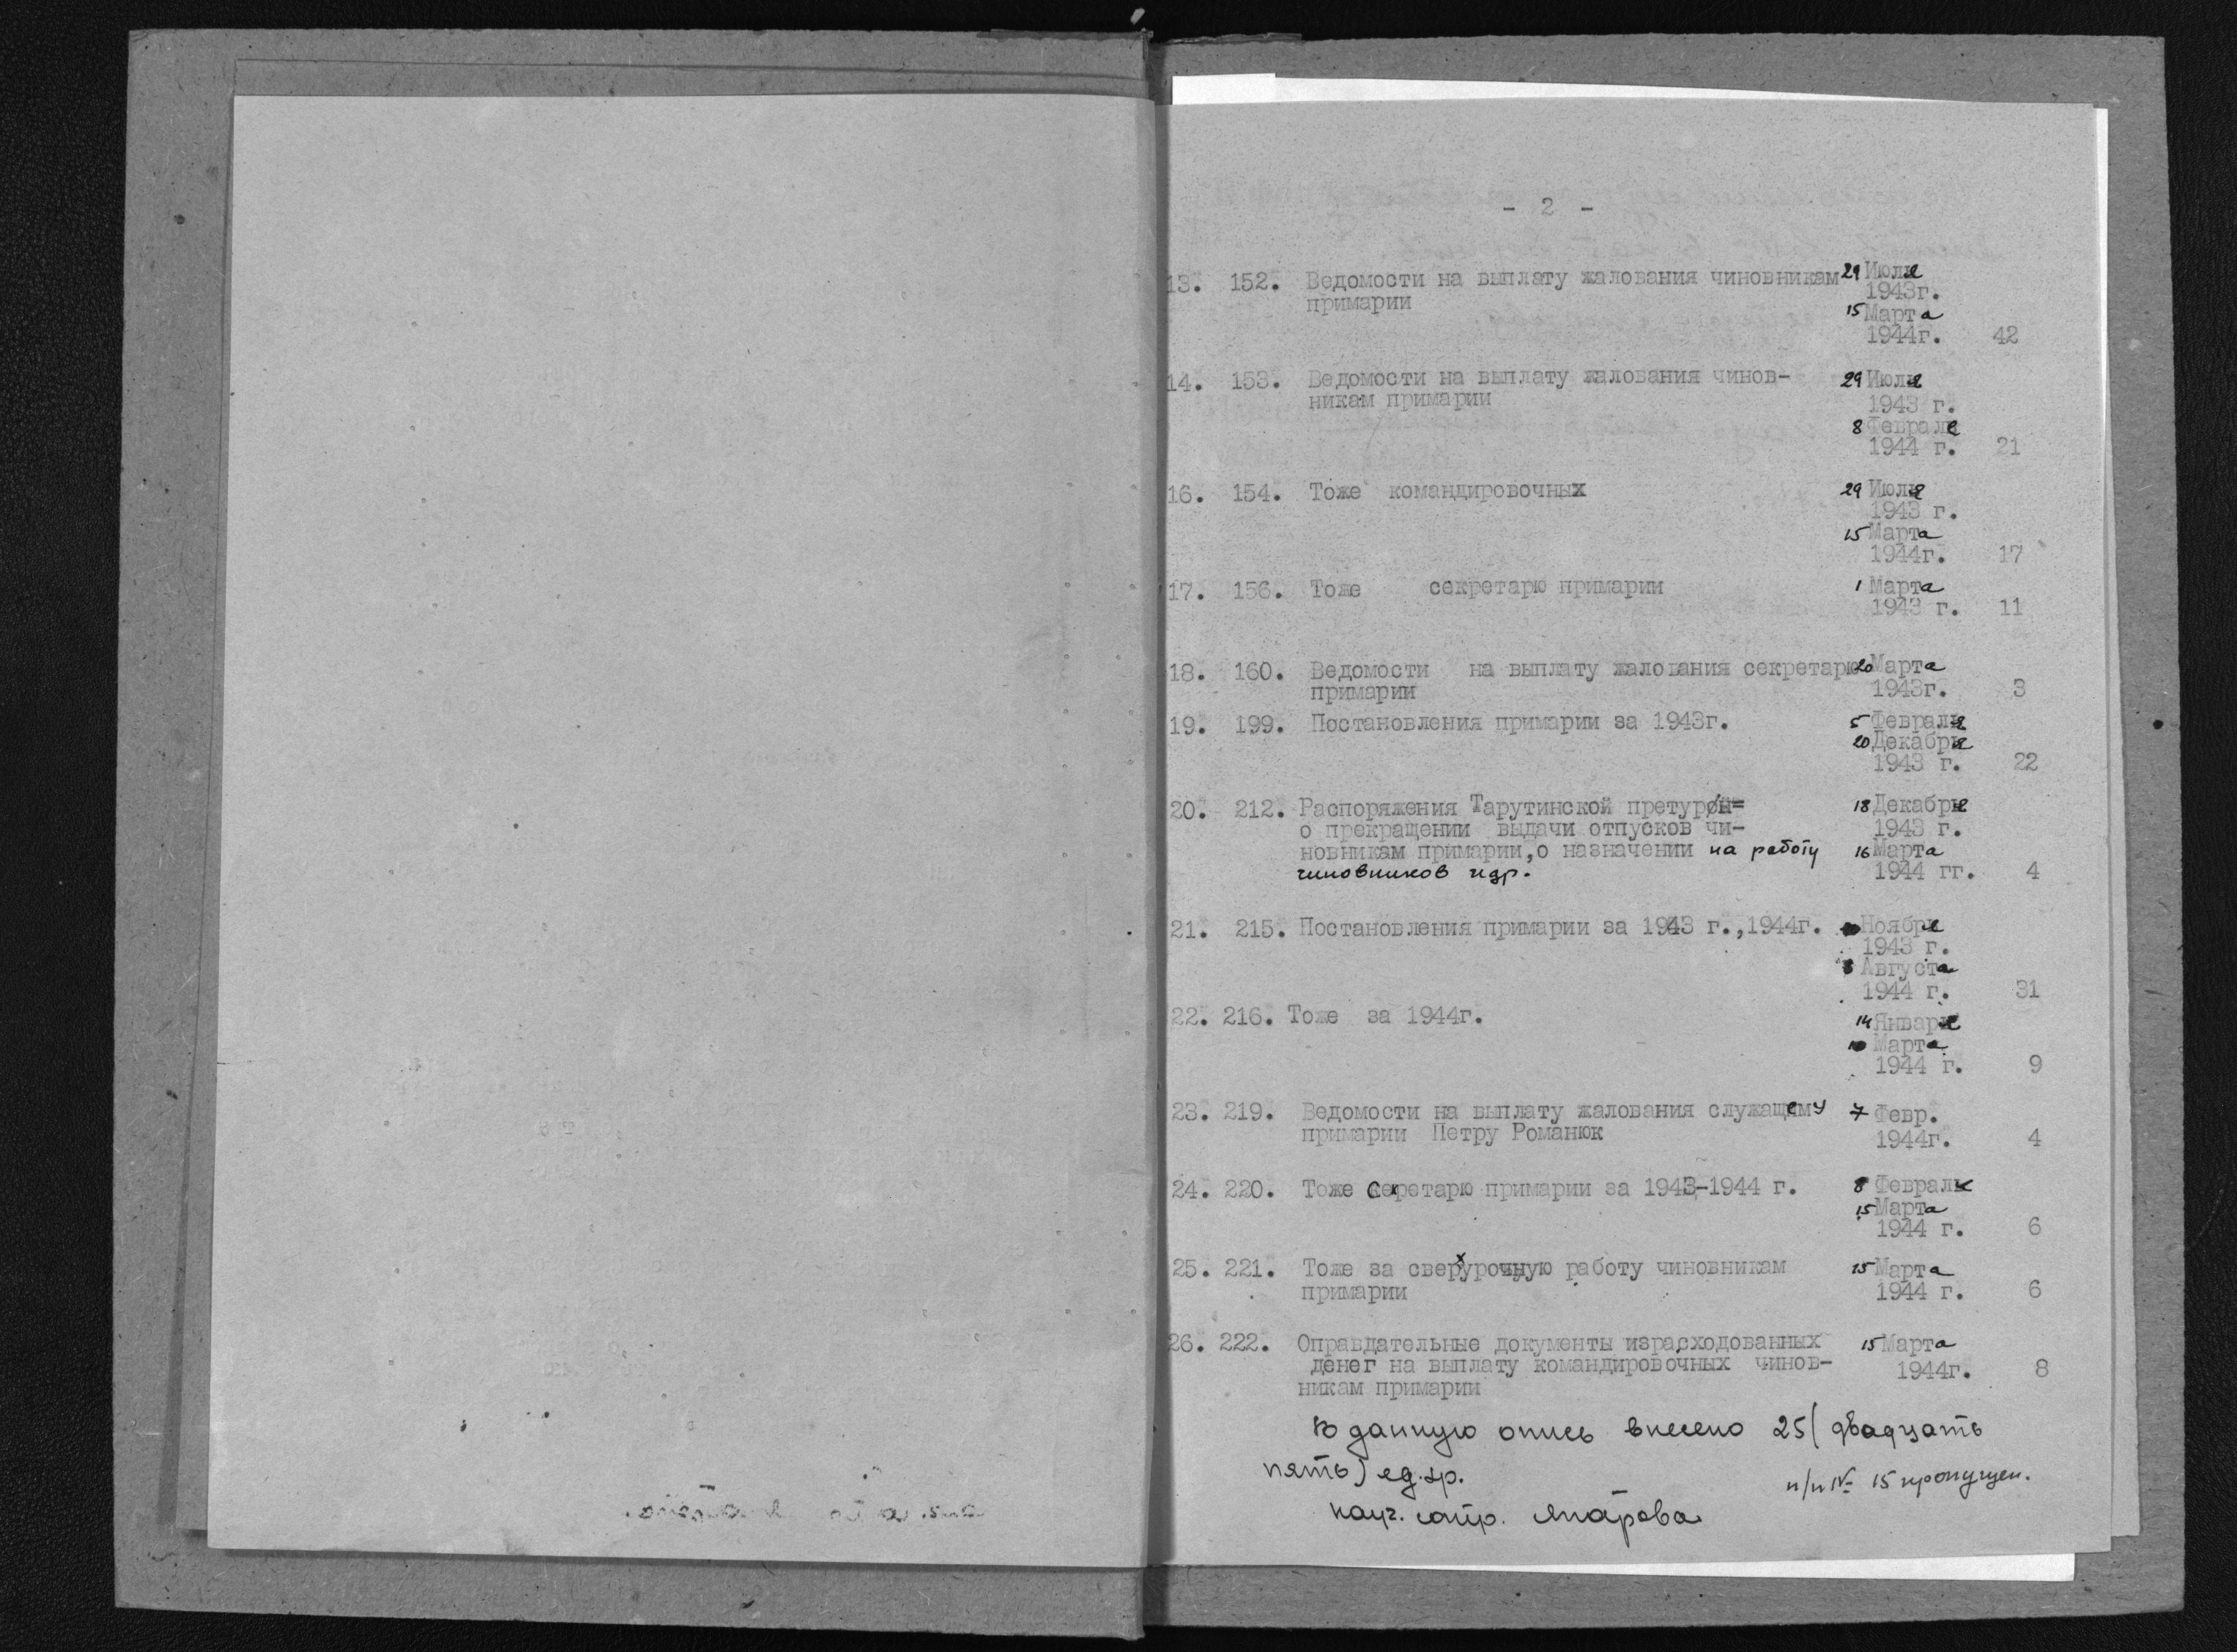 - 2 -
13. 152. Ведомости на выплату жалования чиновникам 29 Июля
примарии 1943г.
15 Марта
1944г. 42
14. 153. Ведомости на выплату жалования чинов- 29 Июля
никам примарии 1943 г.
8 Февраля
1944 г. 21
16. 154. Тоже командировочных 29 Июля
1943 г.
15 Марта
1944г. 17
17. 156. Тоже секретарю примарии 1 Марта
1943 г. 11
18. 160. Ведомости на выплату жалования секретарю 20 Марта
примарии 1943г. 3
19. 199. Постановления примарии за 1943г. 5 Февраля
20 Декабря
1943 г. 22
20. 212. Распоряжения Тарутинской претуры 18 Декабря
о прекращении выдачи отпусков чи- 1943 г.
новникам примарии, о назначении на работу 16 Марта
чиновников и др. 1944 гг. 4
21. 215. Постановления примарии за 1943 г., 1944г. Ноября
1943 г.
Августа
1944 г. 31
22. 216. Тоже за 1944г. 14 Января
Марта
1944 г. 9
23. 219. Ведомости на выплату жалования служащему 7 Февр.
примарии Петру Романюк 1944г. 4
24. 220. Тоже секретарю примарии за 1943-1944 г. 8 Февраля
15 Марта
1944 г. 6
25. 221. Тоже за сверхурочную работу чиновникам 15 Марта
примарии 1944 г. 6
26. 222. Оправдательные документы израсходованных 15 Марта
денег на выплату командировочных чинов- 1944г. 8
никам примарии
В данную опись внесено 25 (двадцать
пять) ед. хр.
п/п № 15 пропущен.
науч. сотр.